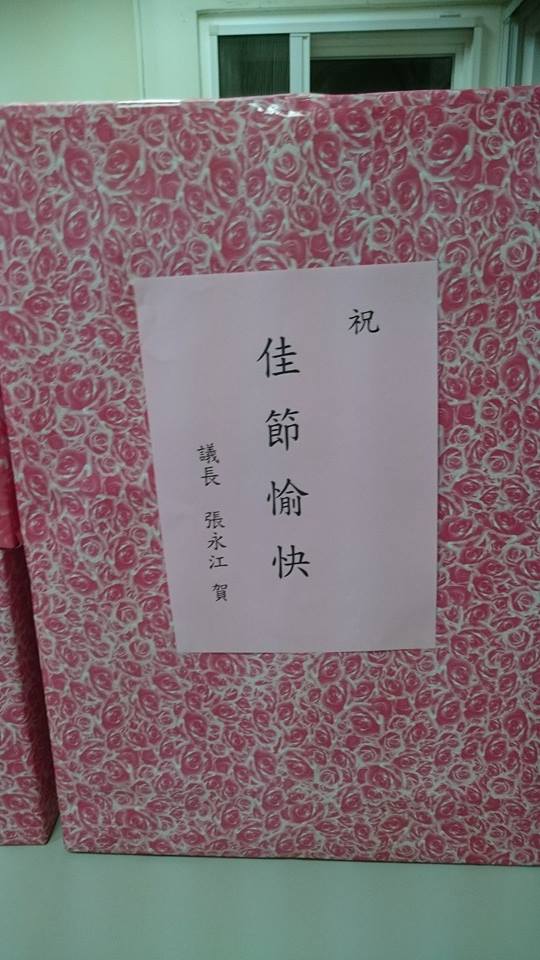 祝
佳節愉快
議長 張永江 賀